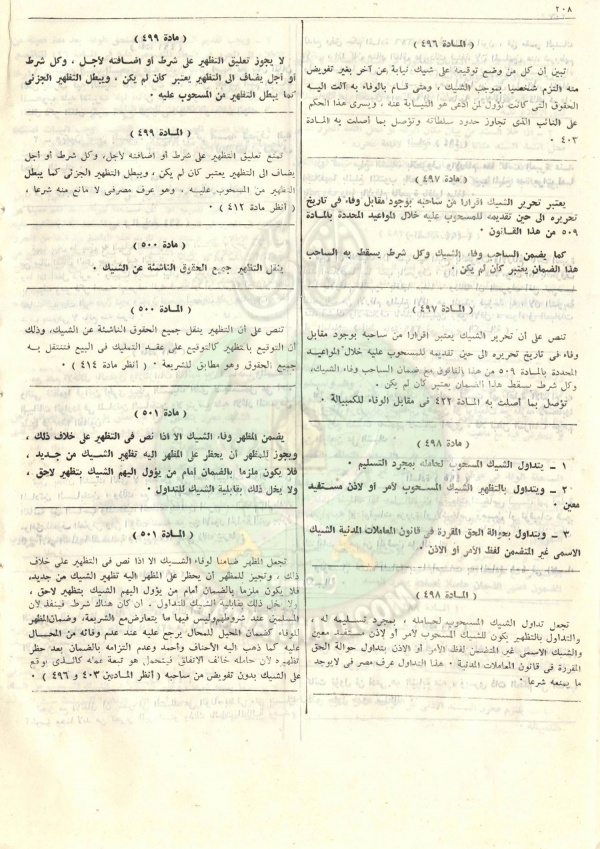 ٢٠٨
( المادة ٤٩٦ )
تبين ان كل من وضع توقيعه على شيك نيابة عن آخر بغير تفويض
منه التزم شخصيا بموجب الشيك ، ومتى قام بالوفاء به آلت اليه
الحقوق التي كانت تؤول لمن ادعى هو النيابة عنه ، ويسرى هذا الحكم
على النائب الذى تجاوز حدود سلطاته وتؤصل بما أصلت به المادة
٤٠٣ ٠
مادة ٤٩٧ )
يعتبر تحرير الشيك اقرارا من ساحبه بوجود مقابل وفاء فى تاريخ
تحريره الى حين تقديمه للمسحوب عليه خلال المواعيد المحددة بالمادة
٥٠٩ من هذا القانون ٠
كما يضمن الساحب وفاء الشيك وكل شرط يسقط به الساحب
هذا الضمان يعتبر كأن لم يكن ٠
( المادة ٤٩٧ )
تنص على أن تحرير الشيك يعتبر اقرارا من ساحبه بوجود مقابل
وفاء فى تاريخ تحريره الى حين تقديمه للمسحوب عليه خلال المواعيد
المحددة بالمادة ٥٠٩ من هذا القانون مع ضمان الساحب وفاء الشيك،
وكل شرط يسقط هذا الضمان يعتبر كأن لم يكن ٠
تؤصل بما أصلت به المادة ٤٢٢ فى مقابل الوفاء للكمبيالة ٠
( مادة ٤٩٨ )
١ ـ يتداول الشيك المسحوب لحامله بمجرد التسليم ٠
٢ ـ ويتداول بالتظهير الشيك المسحوب لأمر أو لاذن مستفيد
معين ٠
٣ ـ ويتداول بحوالة الحق المقررة فى قانون المعاملات المدنية الشيك
الاسمى غير المتضمن لفظ الأمر أو الاذن ٠
( المادة ٤٩٨ )
تجعل تداول الشيك المسحوب لحامله ، بمجرد تسليمه له ،
والتداول بالتظهير يكون للشيك المسحوب لأمر أو لاذن مستفيد معين
والشيك الاسمى غير المتضمن لفظ الأمر أو الاذن بتداول حوالة الحق
المقررة فى قانون المعاملات المدنية ٠ هذا التداول عرف مصرفى لايوجد
ما يمنعه شرعا ٠
( مادة ٤٩٩ )
لا يجوز تعليق التظهير على شرط أو اضافته لأجل ، وكل شرط
أو أجل يضاف الى التظهير يعتبر كأن لم يكن ، ويبطل التظهير الجزئى
كما يبطل التظهير من المسحوب عليه ٠
( المادة ٤٩٩ )
تمنع تعليق التظهير على شرط أو اضافته لأجل، وكل شرط أو أجل
يضاف الى التظهير يعتبر كأن لم يكن ، ويبطل التظهير الجزئى كما يبطل
التظهير من المسحوب عليه ، وهو عرف مصرفى لا مانع منه شرعا ،
( أنظر مادة ٤١٢ ) ٠
مادة ٥٠٠ )
ينقل التظهير جميع الحقوق الناشئة عن الشيك ٠
( المادة ٥٠٠ )
تنص على أن التظهير ينقل جميع الحقوق الناشئة عن الشيك، وذلك
أن التوقيع بالتظهير كالتوقيع على عقد التمليك فى البيع فتنتقل به
جميع الحقوق وهو مطابق للشريعة ٠ ( أنظر مادة ٤١٤ )
( مادة ٥٠١ )
يضمن المظهر وفاء الشيك الا اذا نص فى التظهير على خلاف ذلك ،
ويجوز للمظهر أن يحظر على المظهر اليه تظهير الشيك من جديد ،
فلا يكون ملزما بالضمان أمام من يؤول اليهم الشيك بتظهير لاحق ،
ولا يخل ذلك بقابلية الشيك للتداول ٠
( المادة ٥٠١ )
تجعل المظهر ضامنا لوفاء الشيك الا اذا نص فى التظهير على خلاف
ذلك ، وتجيز للمظهر أن يحظر على المظهر اليه تظهير الشيك من جديد،
فلا يكون ملزما بالضمان أمام من يؤول اليهم الشيك بتظهير لاحق ،
ولا يخل ذلك بقابلية الشيك للتداول ٠ ان كان هناك شرط فينفذ لأن
المسلمين عند شروطهم وليس فيها ما يتعارض مع الشريعة، وضمان المظهر
للوفاء كضمان المحيل للمحال يرجع عليه عند عدم وفائه من المحال
عليه كما ذهب اليه الأحناف وأحمد وعدم التزامه بالضمان بعد حظر
تظهيره لأن حامله خالف الاتفاق فيتحمل هو تبعة عمله كالذى يوقع
على الشيك بدون تفويض من ساحبه ( أنظر المادتين ٤٠٣ و ٤٩٦ ) ٠